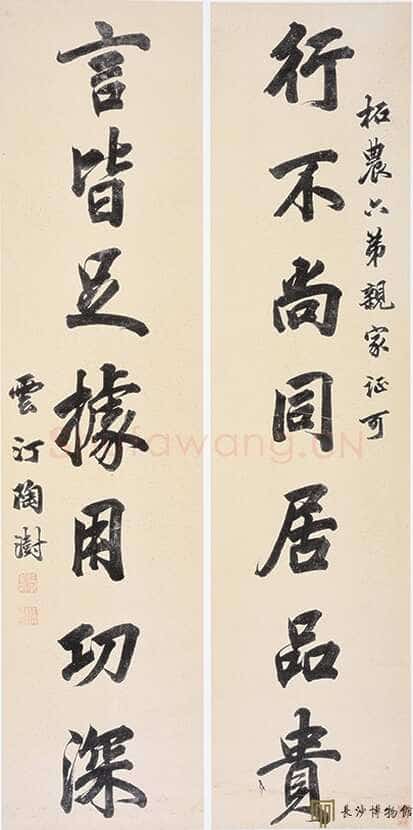 柘農六弟親家证可
行不尚同居品貴
言皆足據用功深
雲汀陶澍
Shufawang.CN
長沙博物館